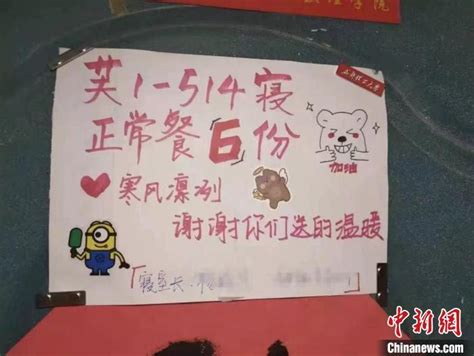 学院
芙1-514寝
正常餐「6」份
加油
寒风凛冽
谢谢你们送的温暖
寝室长
中新网
Chinanews.com